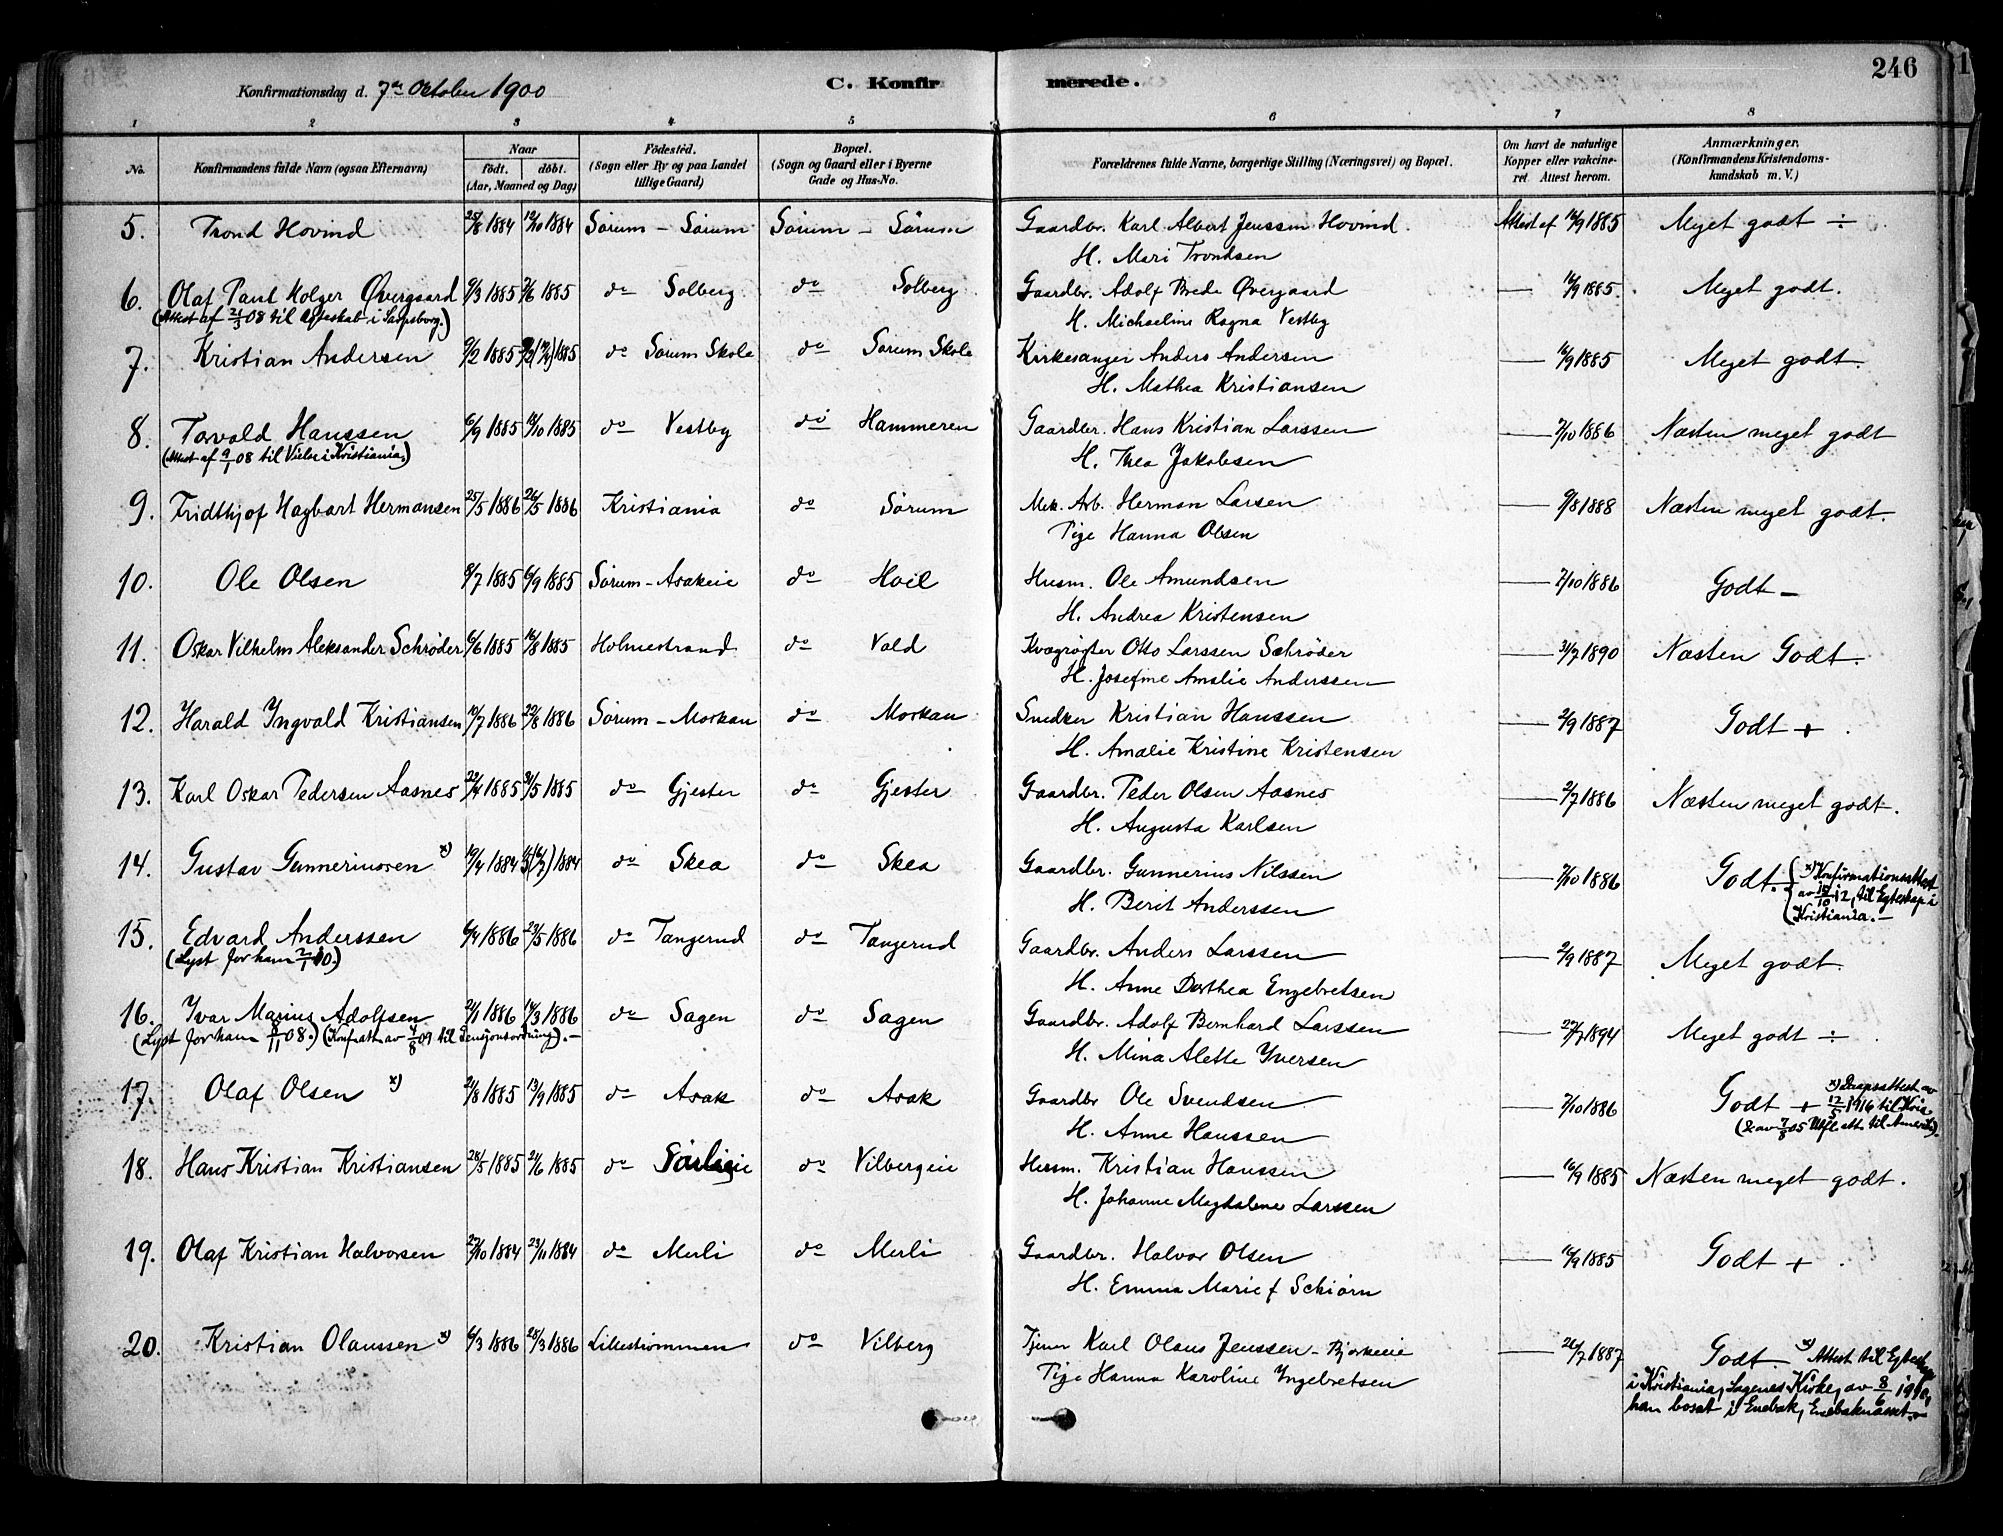 246
Konfirmationsdag d. 7de October 1900 C. Konfirmerede.
1 2 3 4 5 6 7 8
No. Konfirmandens fulde Navn (ogsaa Efternavn) Naar født. døbt. (Aar, Maaned og Dag) Fødested. (Sogn eller By og paa Landet tillige Gaard) Bopæl. (Sogn og Gaard eller i Byerne Gade og Hus-No. Forældrenes fulde Navne, borgerlige Stilling (Næringsvei) og Bopæl. Om havt de naturlige Kopper eller vakcineret Attest herom. Anmærkninger. (Konfirmandens Kristendomskundskab m. V.)
5. Trond Hovind 25/8 1884 12/10 1884 Sørum - Sørum Sørum - Sørum Gaardbr. Karl Albert Jenssen Hovind. Attest af 16/9 1885 Meget godt ÷
H. Mari Trondsen
6. Olaf Paul Holger Øvergaard 9/3 1885 7/6 1885 do Solberg do Solberg Gaardbr. Adolf Brede Øvergaard — 16/9 1885. Meget godt.
(Attest af 21/3 08 til Egteskab i Sarpsborg.) H. Michaeline Ragna Vestby
7. Kristian Andersen 9/2 1885 1885 do Sørum Skole do Sørum Skole Kirkesanger Anders Andersen — 16/9 1885 Meget godt.
H. Mathea Kristiansen
8. Torvald Hanssen 6/9 1885 18/10 1885 do Vestby do Hammeren Gaardbr. Hans Kristian Larssen — 7/10 1886 Næsten meget godt
(Attest af 9/1 08 til Vielse i Kristiania.) H. Thea Jakobsen
9. Fridthjof Hagbart Hermansen 25/5 1886 26/5 1886 Kristiania do Sørum Mek. Arb. Herman Larsen — 9/8 1888 Næsten meget godt.
Pige Hanna Olsen
10. Ole Olsen 8/7 1885 6/9 1885 Sørum - Asakeie do Hoel Husm. Ole Amundsen — 7/10 1886 Godt -
H. Andrea Kristensen
11. Oskar Vilhelm Aleksander Schrøder 6/6 1885 16/8 1885 Holmestrand do Vold Kvægrøgter Otto Larssen Schrøder — 31/7 1890 Næsten Godt.
H. Josefine Amalie Anderssen
12. Harald Yngvald Kristiansen 10/7 1886 22/8 1886 Sørum - Morkan do Morkan Snedker Kristian Hanssen — 2/9 1887 Godt +
H. Amalie Kristine Kristensen
13. Karl Oskar Pedersen Aasnes 22/4 1885 31/5 1885 do Gjester do Gjester Gaardbr. Peder Olsen Aasnes — 2/7 1886 Næsten meget godt.
H. Augusta Karlsen
14. Gustav Gunneriussen x) 19/4 1884 1884 do Skea do Skea Gaardbr. Gunnerius Nilssen — 7/10 1886 Godt. x) Konfirmationsattest av 15/10 12, til Egteskap i Kristiania. -
H. Berit Anderssen
15. Edvard Anderssen 6/4 1886 23/5 1886 do Tangerud do Tangerud Gaardbr. Anders Larssen — 2/9 1887 Meget godt.
(Lyst for ham 2/1 10.) H. Anne Dorthea Engebretsen
16. Ivar Marius Adolfsen 21/1 1886 14/3 1886 do Sagen do Sagen Gaardbr. Adolf Bernhard Larssen — 27/7 1894 Meget godt ÷
(Lyst for ham 8/11 08.) (Konf.att. av 4/8 09 til Pensjonsordning). - H. Mina Alette Yversen
17. Olaf Olsen x) 21/8 1885 13/9 1885 do Asak do Asak Gaardbr Ole Svendsen — 7/10 1886 Godt + x) Daapsattest av 12/5 1916 til Kria.
H. Anne Hanssen (& av 7/8 05 Utfl. att. til Amerika).
18. Hans Kristian Kristiansen 28/5 1885 21/6 1885 do Sørlieie do Vilbergeie Husm. Kristian Hanssen — 16/9 1885 Næsten meget godt.
H. Johanne Magdalene Larssen
19. Olaf Kristian Halvorsen 27/10 1884 23/11 1884 do Merli do Merli Gaardbr. Halvor Olsen — 16/9 1885 Godt +
H. Emma Marie f Schiørn
20. Kristian Olaussen x) 6/3 1886 28/3 1886 Lillestrømmen do Vilberg Tjener Karl Olaus Jenssen - Bjørkeeie — 26/7 1887 Godt - x) Attest til Egteskap
Pige Hanna Karoline Yngebretsen i Kristiania, Sagenes Kirke, av 8/6 1910,
han bosat i Enebak, Enebaknæsset. -